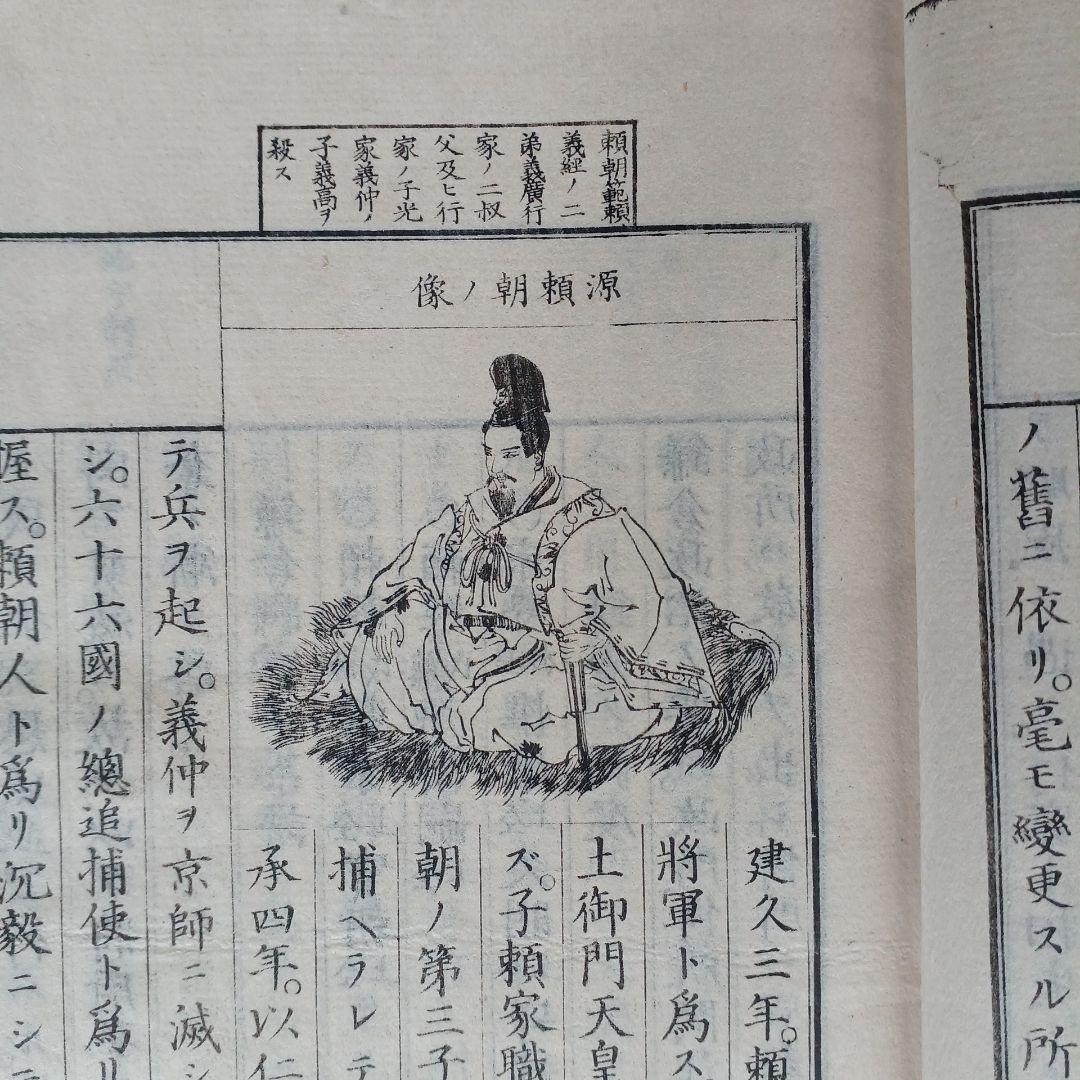 ノ舊ニ依リ。毫モ變更スル所
頼朝範頼
義經ノ二
弟義廣行
家ノ二叔
父及ヒ行
家ノ子光
家義仲ノ
子義高ヲ
殺ス
源頼朝ノ像
建久三年。頼
將軍ト爲ス
土御門天皇
ズ。子頼家職
朝ノ第三子
捕ヘラレテ
承四年。以仁
テ兵ヲ起シ。義仲ヲ京師ニ滅シ
シ。六十六國ノ總追捕使ト爲リ
握ス。頼朝人ト爲リ沉毅ニシテ